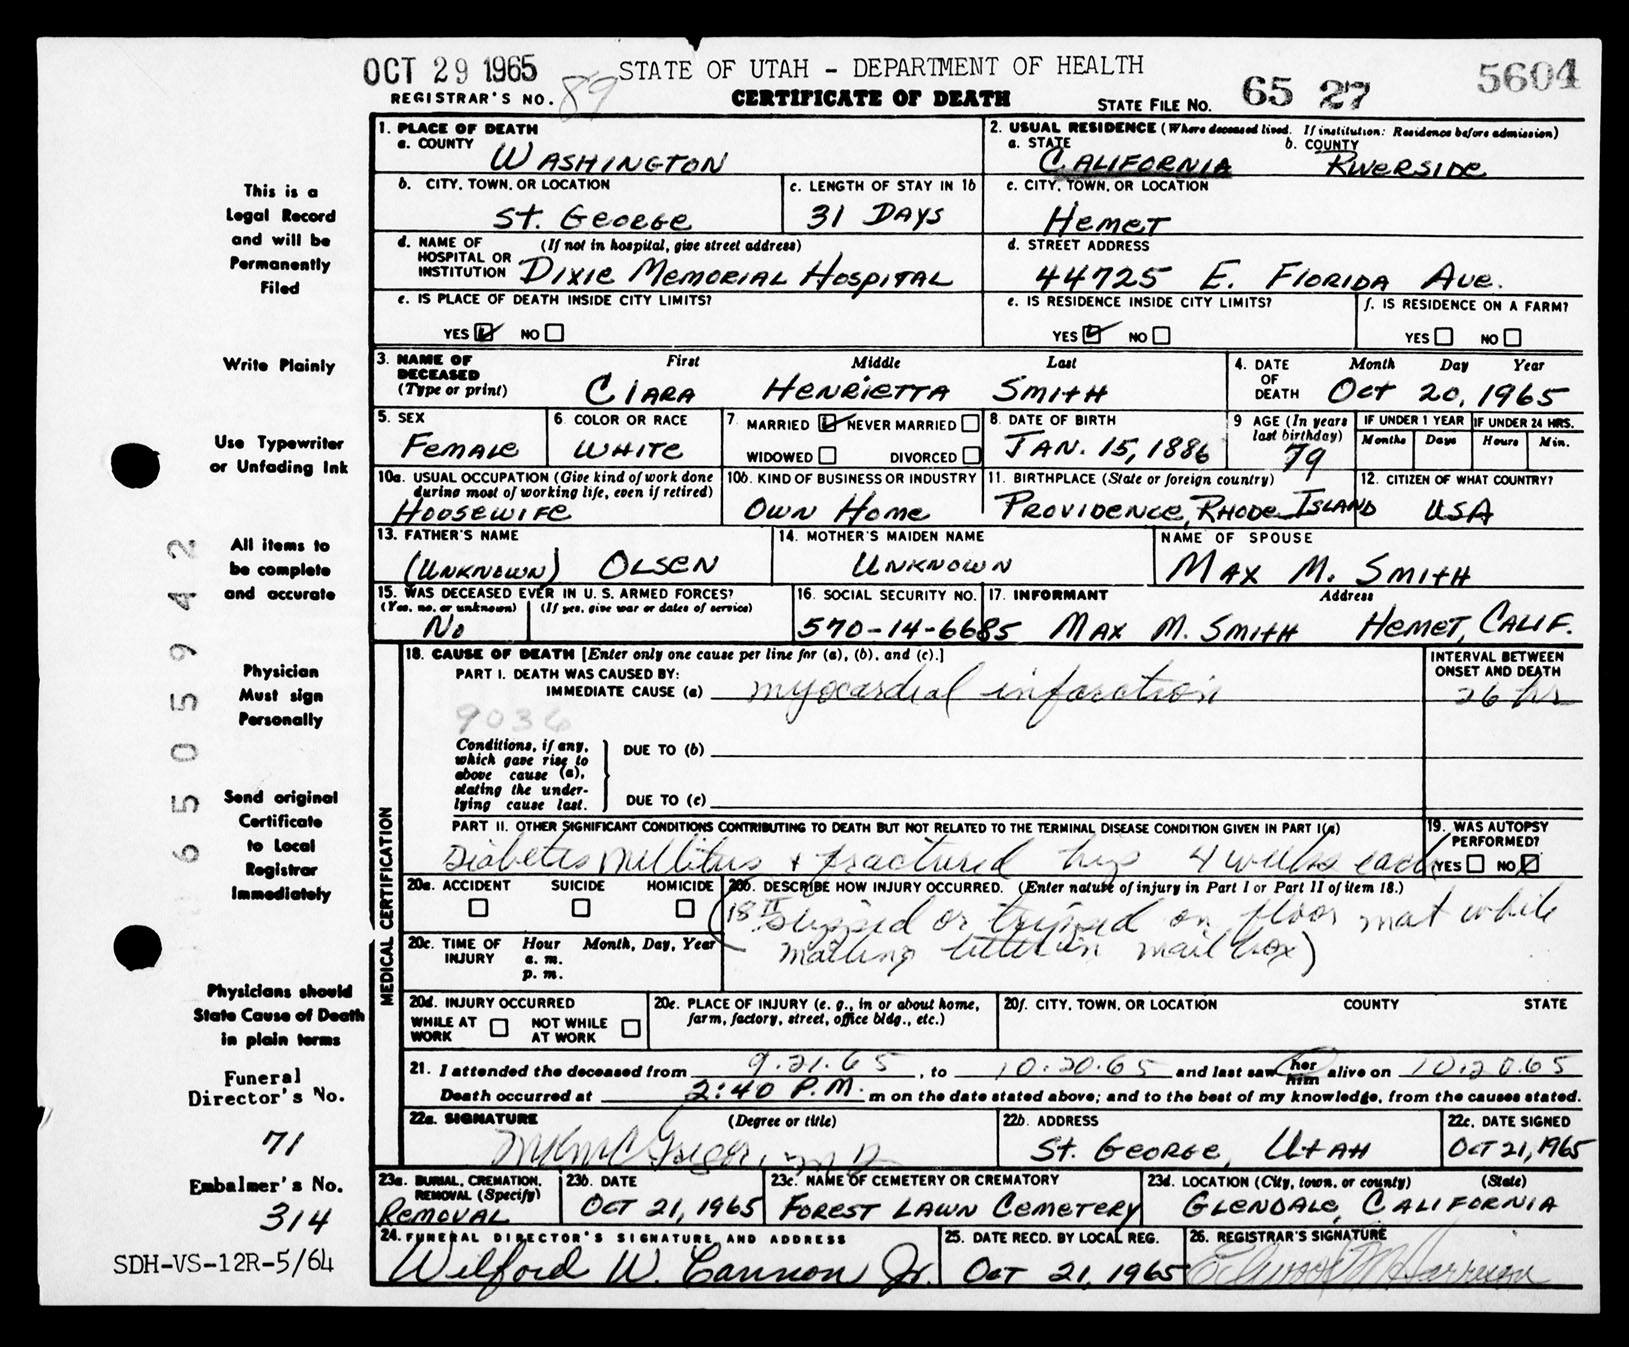 OCT 29 1965
STATE OF UTAH - DEPARTMENT OF HEALTH
5604
REGISTRAR'S NO. 89
CERTIFICATE OF DEATH
STATE FILE NO. 65 27
1. PLACE OF DEATH
a. COUNTY
WASHINGTON
2. USUAL RESIDENCE (Where deceased lived. If institution: Residence before admission)
a. STATE
CALIFORNIA
b. COUNTY
RIVERSIDE
b. CITY, TOWN, OR LOCATION
ST. GEORGE
c. LENGTH OF STAY IN 1b
31 DAYS
c. CITY, TOWN, OR LOCATION
HEMET
d. NAME OF HOSPITAL OR INSTITUTION
(If not in hospital, give street address)
DIXIE MEMORIAL HOSPITAL
d. STREET ADDRESS
44725 E. FLORIDA AVE.
e. IS PLACE OF DEATH INSIDE CITY LIMITS?
YES NO
e. IS RESIDENCE INSIDE CITY LIMITS?
YES NO
f. IS RESIDENCE ON A FARM?
YES NO
3. NAME OF DECEASED
(Type or print)
First Middle Last
CLARA HENRIETTA SMITH
4. DATE OF DEATH
Month Day Year
OCT 20, 1965
5. SEX
FEMALE
6. COLOR OR RACE
WHITE
7 MARRIED NEVER MARRIED
WIDOWED DIVORCED
8. DATE OF BIRTH
JAN. 15, 1886
9 AGE (In years last birthday)
79
IF UNDER 1 YEAR
Months Days
IF UNDER 24 HRS.
Hours Min.
10a. USUAL OCCUPATION (Give kind of work done during most of working life, even if retired)
HOUSEWIFE
10b. KIND OF BUSINESS OR INDUSTRY
OWN HOME
11. BIRTHPLACE (State or foreign country)
PROVIDENCE, RHODE ISLAND
12. CITIZEN OF WHAT COUNTRY?
USA
13. FATHER'S NAME
(UNKNOWN) OLSEN
14. MOTHER'S MAIDEN NAME
UNKNOWN
NAME OF SPOUSE
MAX M. SMITH
15. WAS DECEASED EVER IN U. S. ARMED FORCES?
(Yes, no, or unknown) (If yes, give war or dates of service)
NO
16. SOCIAL SECURITY NO.
570-14-6685
17. INFORMANT Address
MAX M. SMITH HEMET, CALIF.
MEDICAL CERTIFICATION
18. CAUSE OF DEATH [Enter only one cause per line for (a), (b), and (c).]
PART I. DEATH WAS CAUSED BY:
IMMEDIATE CAUSE (a) myocardial infarction
INTERVAL BETWEEN ONSET AND DEATH
26 hr
9036
Conditions, if any, which gave rise to above cause (a), stating the underlying cause last.
DUE TO (b)
DUE TO (c)
PART II. OTHER SIGNIFICANT CONDITIONS CONTRIBUTING TO DEATH BUT NOT RELATED TO THE TERMINAL DISEASE CONDITION GIVEN IN PART I(a)
Diabetes Mellitus + fractured hip 4 weeks each
19. WAS AUTOPSY PERFORMED?
YES NO
20a. ACCIDENT SUICIDE HOMICIDE
20b. DESCRIBE HOW INJURY OCCURRED. (Enter nature of injury in Part I or Part II of item 18.)
(18 II Slipped or tripped on floor mat while
mailing letter in mail box)
20c. TIME OF INJURY
Hour Month, Day, Year
a. m.
p. m.
20d. INJURY OCCURRED
WHILE AT WORK NOT WHILE AT WORK
20e. PLACE OF INJURY (e. g., in or about home, farm, factory, street, office bldg., etc.)
20f. CITY, TOWN, OR LOCATION COUNTY STATE
21. I attended the deceased from 9.21.65, to 10.20.65 and last saw her him alive on 10.20.65
Death occurred at 2:40 P.M. m on the date stated above; and to the best of my knowledge, from the causes stated.
22a. SIGNATURE (Degree or title)
McGregor, MD
22b. ADDRESS
ST. GEORGE, UTAH
22c. DATE SIGNED
OCT 21, 1965
23a. BURIAL, CREMATION, REMOVAL (Specify)
REMOVAL
23b. DATE
OCT 21, 1965
23c. NAME OF CEMETERY OR CREMATORY
FOREST LAWN CEMETERY
23d. LOCATION (City, town, or county) (State)
GLENDALE, CALIFORNIA
24. FUNERAL DIRECTOR'S SIGNATURE AND ADDRESS
Wilford W. Cannon Jr.
25. DATE RECD. BY LOCAL REG.
OCT 21, 1965
26. REGISTRAR'S SIGNATURE
This is a
Legal Record
and will be
Permanently
Filed
Write Plainly
Use Typewriter
or Unfading Ink
All items to
be complete
and accurate
Physician
Must sign
Personally
Send original
Certificate
to Local
Registrar
Immediately
Physicians should
State Cause of Death
in plain terms
Funeral
Director's No.
71
Embalmer's No.
314
SDH-VS-12R-5/64
6505942